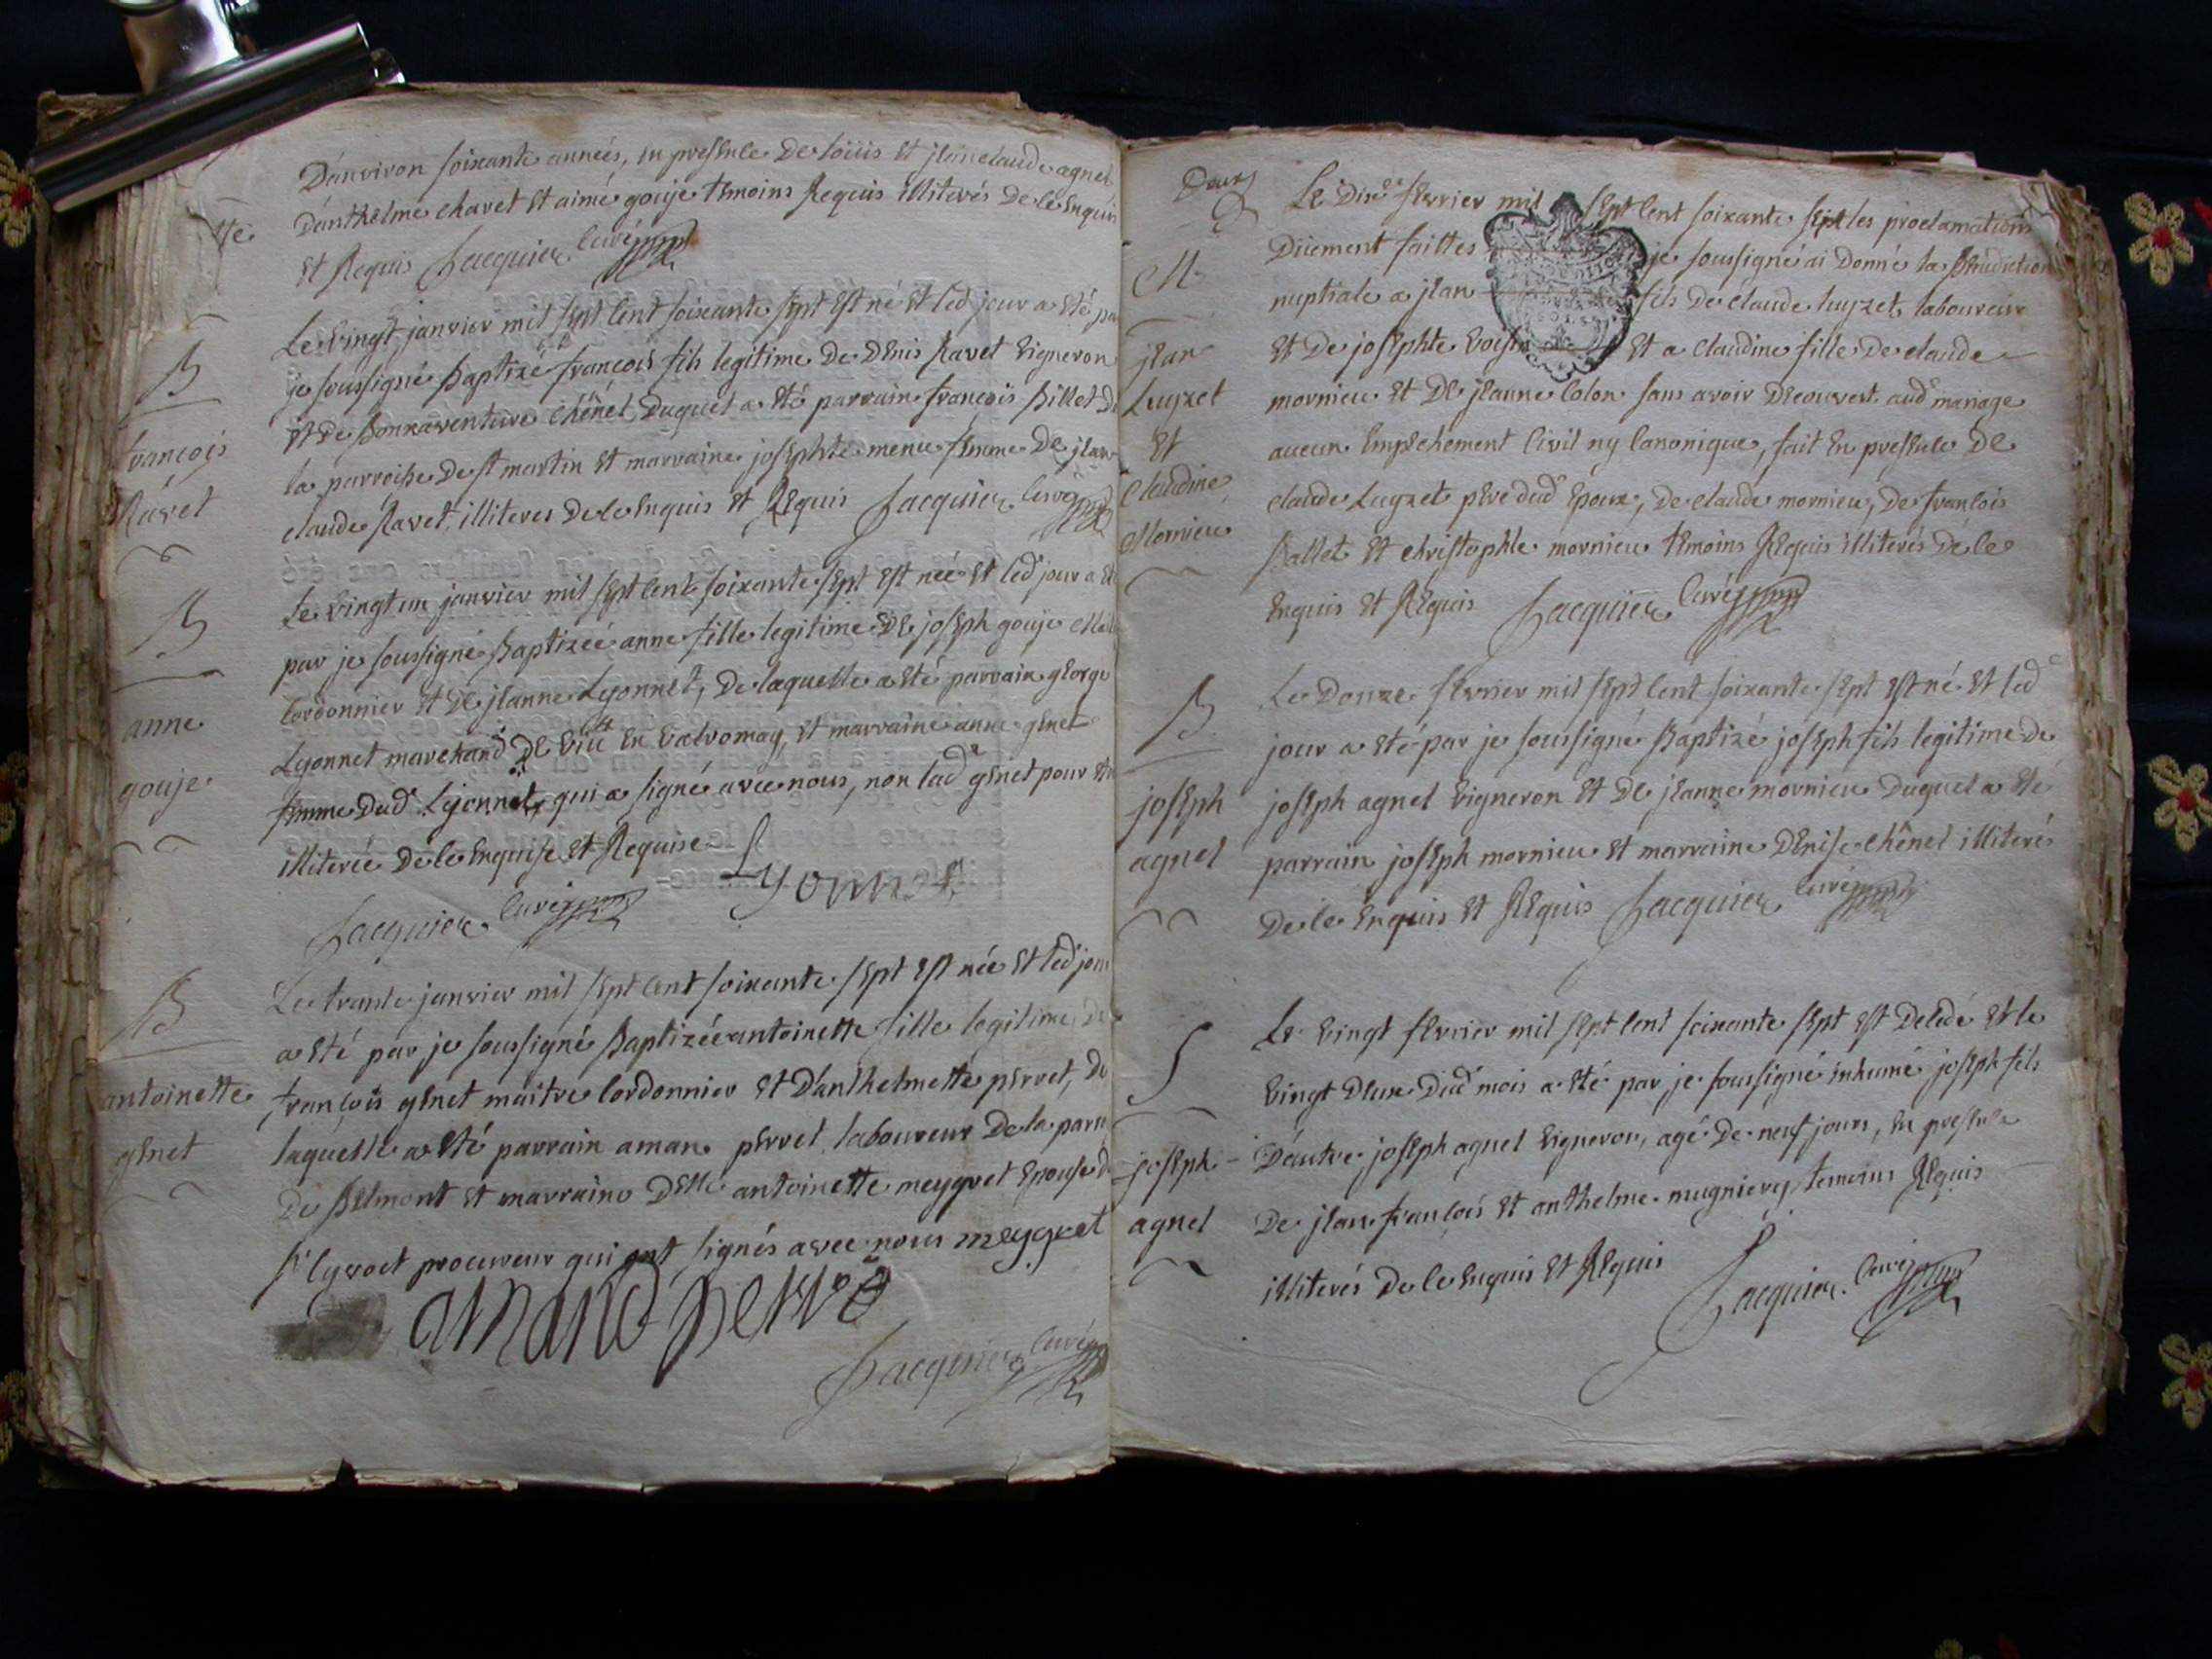 D'anviron soixante années, en presence de loüis et jean claude agnel
tte
D'anthelme chavet et aimé gouje temoins Requis illiterés de ce enquis
et Requis Jacquier curé
Le vingt janvier mil sept cent soixante sept est né et led jour a eté par
je soussigné Baptizé françois fils legitime de Denis Ravet vigneron
et de Bonnaventure chênel, duquel a eté parrain françois Billet de
la parroisse de st martin et marraine josephte menu femme de jean
claude Ravet, illiteres de ce enquis et Requis Jacquier curé
B
françois
Ravet
Le vingt un janvier mil sept cent soixante sept est neé et led jour a eté
par je soussigné Baptizeé anne fille legitime de joseph gouje
cordonnier et de jeanne Lyonnet, de laquelle a eté parrain george
Lyonnet marchand de en valromay, et marraine anne genet
femme dud Lyonnet, qui a signé avec nous, non lad genet pour etre
illiterée de ce enquise et Requise Lyonnet
Jacquier curé
B
anne
gouje
Le trante janvier mil sept cent soixante sept est née et led jour
a eté par je soussigné Baptizée antoinette fille legitime de
françois genet maitre cordonnier et d'anthelmette perret, de
laquelle a eté parrain aman perret laboureur de la parr
de Belmont et marraine Delle antoinette meygret epouse d
sr lyvoet procureur qui ont signés avec nous meygret
amand perret
Jacquier curé
B
antoinette
genet
Deux
Le dixe fevrier mil sept cent soixante sept les proclamations
Düement faittes je soussigné ai donné la Benediction
nuptiale a jean fils de claude luyzet laboureur
et de josephte et a claudine fille de claude
mornieu et de jeanne colon sans avoir decouvert aud mariage
aucun empechement civil ny canonique, fait en presence de
claude Luyzet pere dud epoux, de claude mornieu, de françois
Ballet et christophle mornieu temoins Requis illiterés de ce
enquis et Requis Jacquier curé
M
jean
Luyzet
et
claudine
Mornieu
Le douze fevrier mil sept cent soixante sept est né et led
jour a eté par je soussigné Baptizé joseph fils legitime de
joseph agnel vigneron et de jeanne mornieu duquel a eté
parrain joseph mornieu et marraine denise chênel illiterés
de ce enquis et Requis Jacquier curé
B
joseph
agnel
Le vingt fevrier mil sept cent soixante sept est decedé et le
vingt deux dud mois a eté par je soussigné inhumé joseph fils
D'autre joseph agnel vigneron, agé de neuf jours, en presence
de jean françois et anthelme mugniery temoins Requis
illiterés de ce enquis et Requis Jacquier curé
S
joseph
agnel